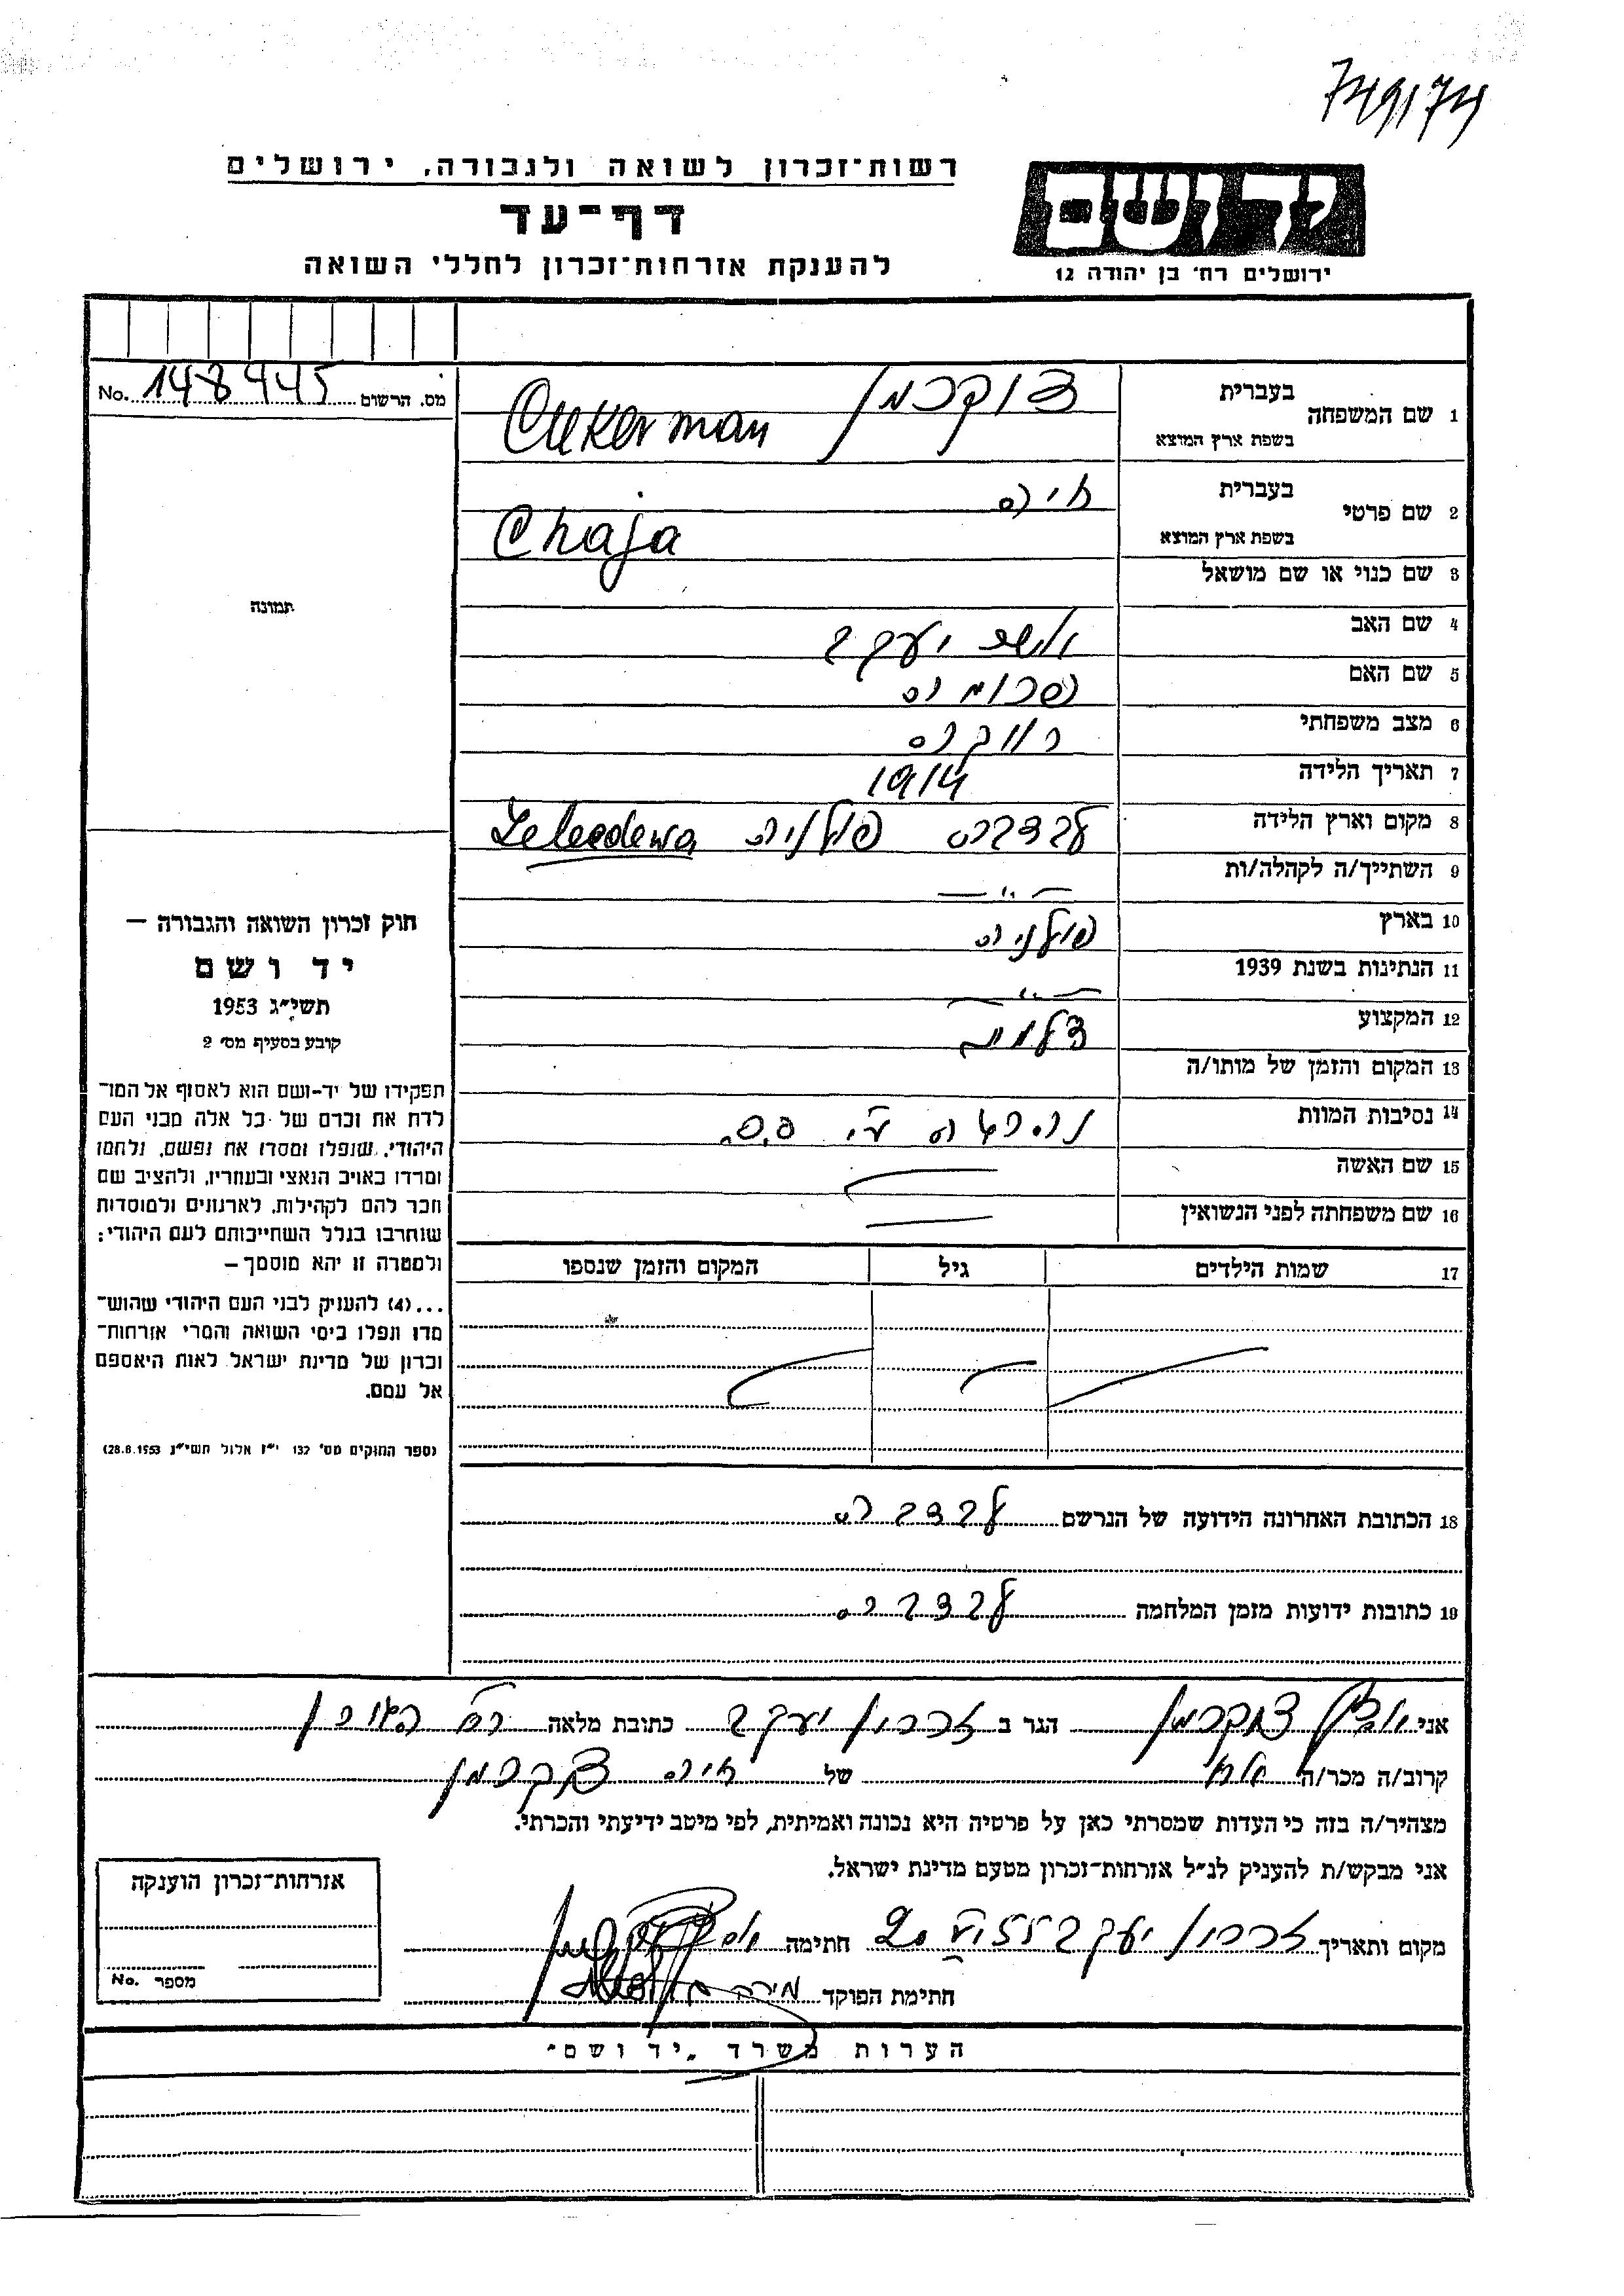 רשות־זכרון לשואה ולגבורה, ירושלים
דף־עד
להענקת אזרחות־זכרון לחללי השואה
יד ושם
ירושלים רח' בן יהודה 12
מס. הרשום 148445 No.
1 שם המשפחה
בעברית צוקרמן
בשפת ארץ המוצא Cukerman
2 שם פרטי
בעברית חיה
בשפת ארץ המוצא Chaja
3 שם כנוי או שם מושאל
4 שם האב אשר יעקב
5 שם האם נחומה
6 מצב משפחתי רווקה
7 תאריך הלידה 1914
8 מקום וארץ הלידה פולניה
9 השתייך/ה לקהלה/ות —"—
10 בארץ פולניה
11 הנתינות בשנת 1939 —"—
12 המקצוע
13 המקום והזמן של מותו/ה
14 נסיבות המוות נהרגה ע"י ס.ס.
15 שם האשה
16 שם משפחתה לפני הנשואין
17 שמות הילדים גיל המקום והזמן שנספו
18 הכתובת האחרונה הידועה של הנרשם
19 כתובות ידועות מזמן המלחמה
תמונה
חוק זכרון השואה והגבורה –
יד ושם
תשי"ג 1953
קובע בסעיף מס' 2
תפקידו של יד-ושם הוא לאסוף אל המו־
לדת את זכרם של כל אלה מבני העם
היהודי, שנפלו ומסרו את נפשם, נלחמו
ומרדו באויב הנאצי ובעוזריו, ולהציב שם
וזכר להם לקהילות, לארגונים ולמוסדות
שנחרבו בגלל השתייכותם לעם היהודי;
ולמטרה זו יהא מוסמך –
...(4) להעניק לבני העם היהודי שהוש־
מדו ונפלו בימי השואה והמרי אזרחות־
זכרון של מדינת ישראל לאות היאספם
אל עמם.
(ספר החוקים מס' 132 י"ז אלול תשי"ג 28.8.1953)
אני צוקרמן הגר ב זכרון יעקב כתובת מלאה
קרוב/ה מכר/ה אח של חיה צוקרמן
מצהיר/ה בזה כי העדות שמסרתי כאן על פרטיה היא נכונה ואמיתית, לפי מיטב ידיעתי והכרתי.
אני מבקש/ת להעניק לנ"ל אזרחות־זכרון מטעם מדינת ישראל.
מקום ותאריך זכרון יעקב חתימה
חתימת הפוקד
אזרחות־זכרון הוענקה
מספר No.
הערות משרד „יד ושם"